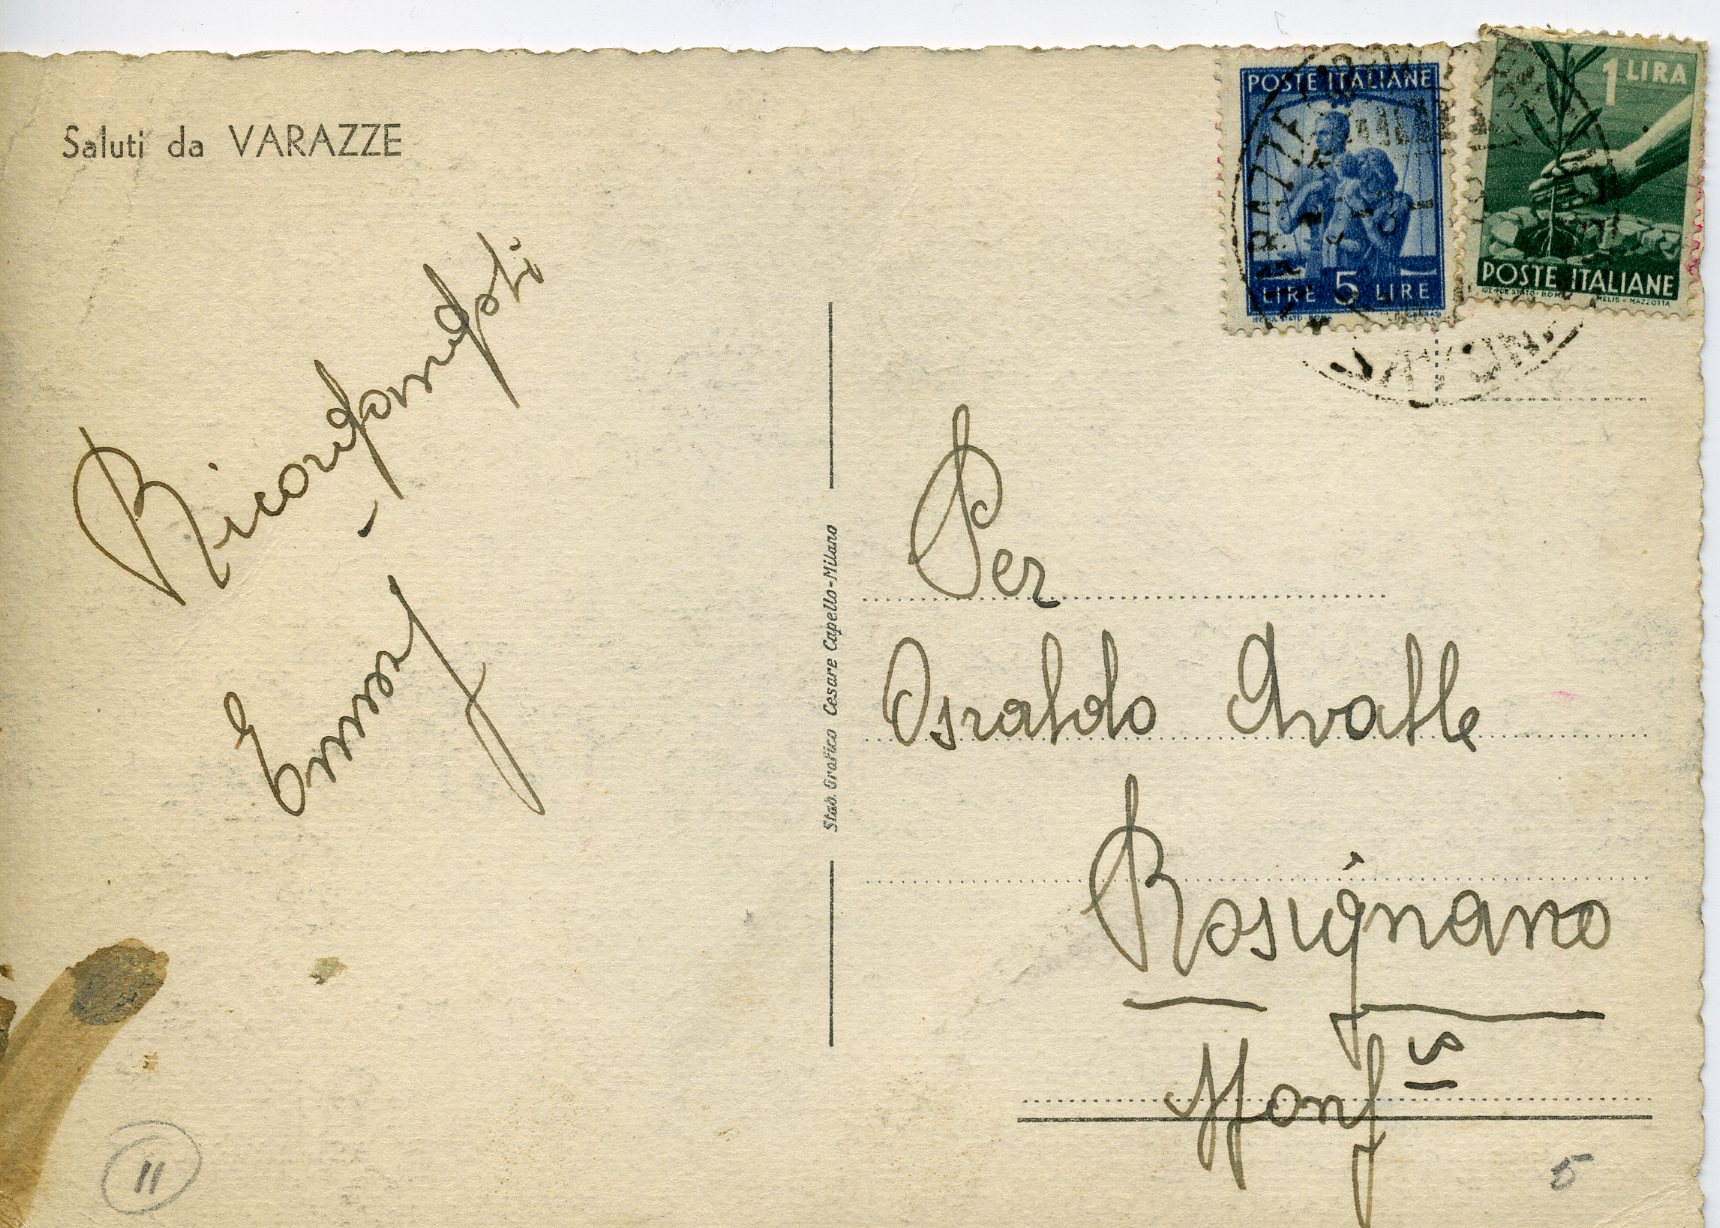 Saluti da VARAZZE
POSTE ITALIANE
LIRE 5 LIRE
1 LIRA
POSTE ITALIANE
Ricordandoti
Emma
Stab. Grafico Cesare Capello-Milano
Per
Osvaldo Avalle
Rosignano
Monf
11
5